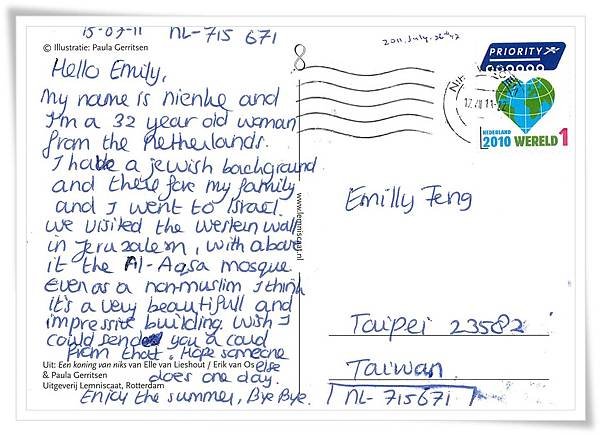 15-07-11 NL-715 671
© Illustratie: Paula Gerritsen
Hello Emily,
My name is Nienke and
I'm a 32 year old woman
from the Netherlands.
I have a jewish background
and therefore my family
and I went to Israel.
We visited the Western wall
in Jeruzalem, with above
it the Al-Aqsa mosque
even as a non-muslim I think
it's a very beautifull and
impressive building. Wish I
could send you a card
from that. Hope someone
else
does one day.
Enjoy the summer, Bye Bye.
Uit: Een koning van niks van Elle van Lieshout / Erik van Os
& Paula Gerritsen
Uitgeverij Lemniscaat, Rotterdam
www.lemniscaat.nl
2011. July. 26th
PRIORITY
NEDERLAND
2010 WERELD 1
Emilly Feng
Taipei 23582
Taiwan
NL-715671